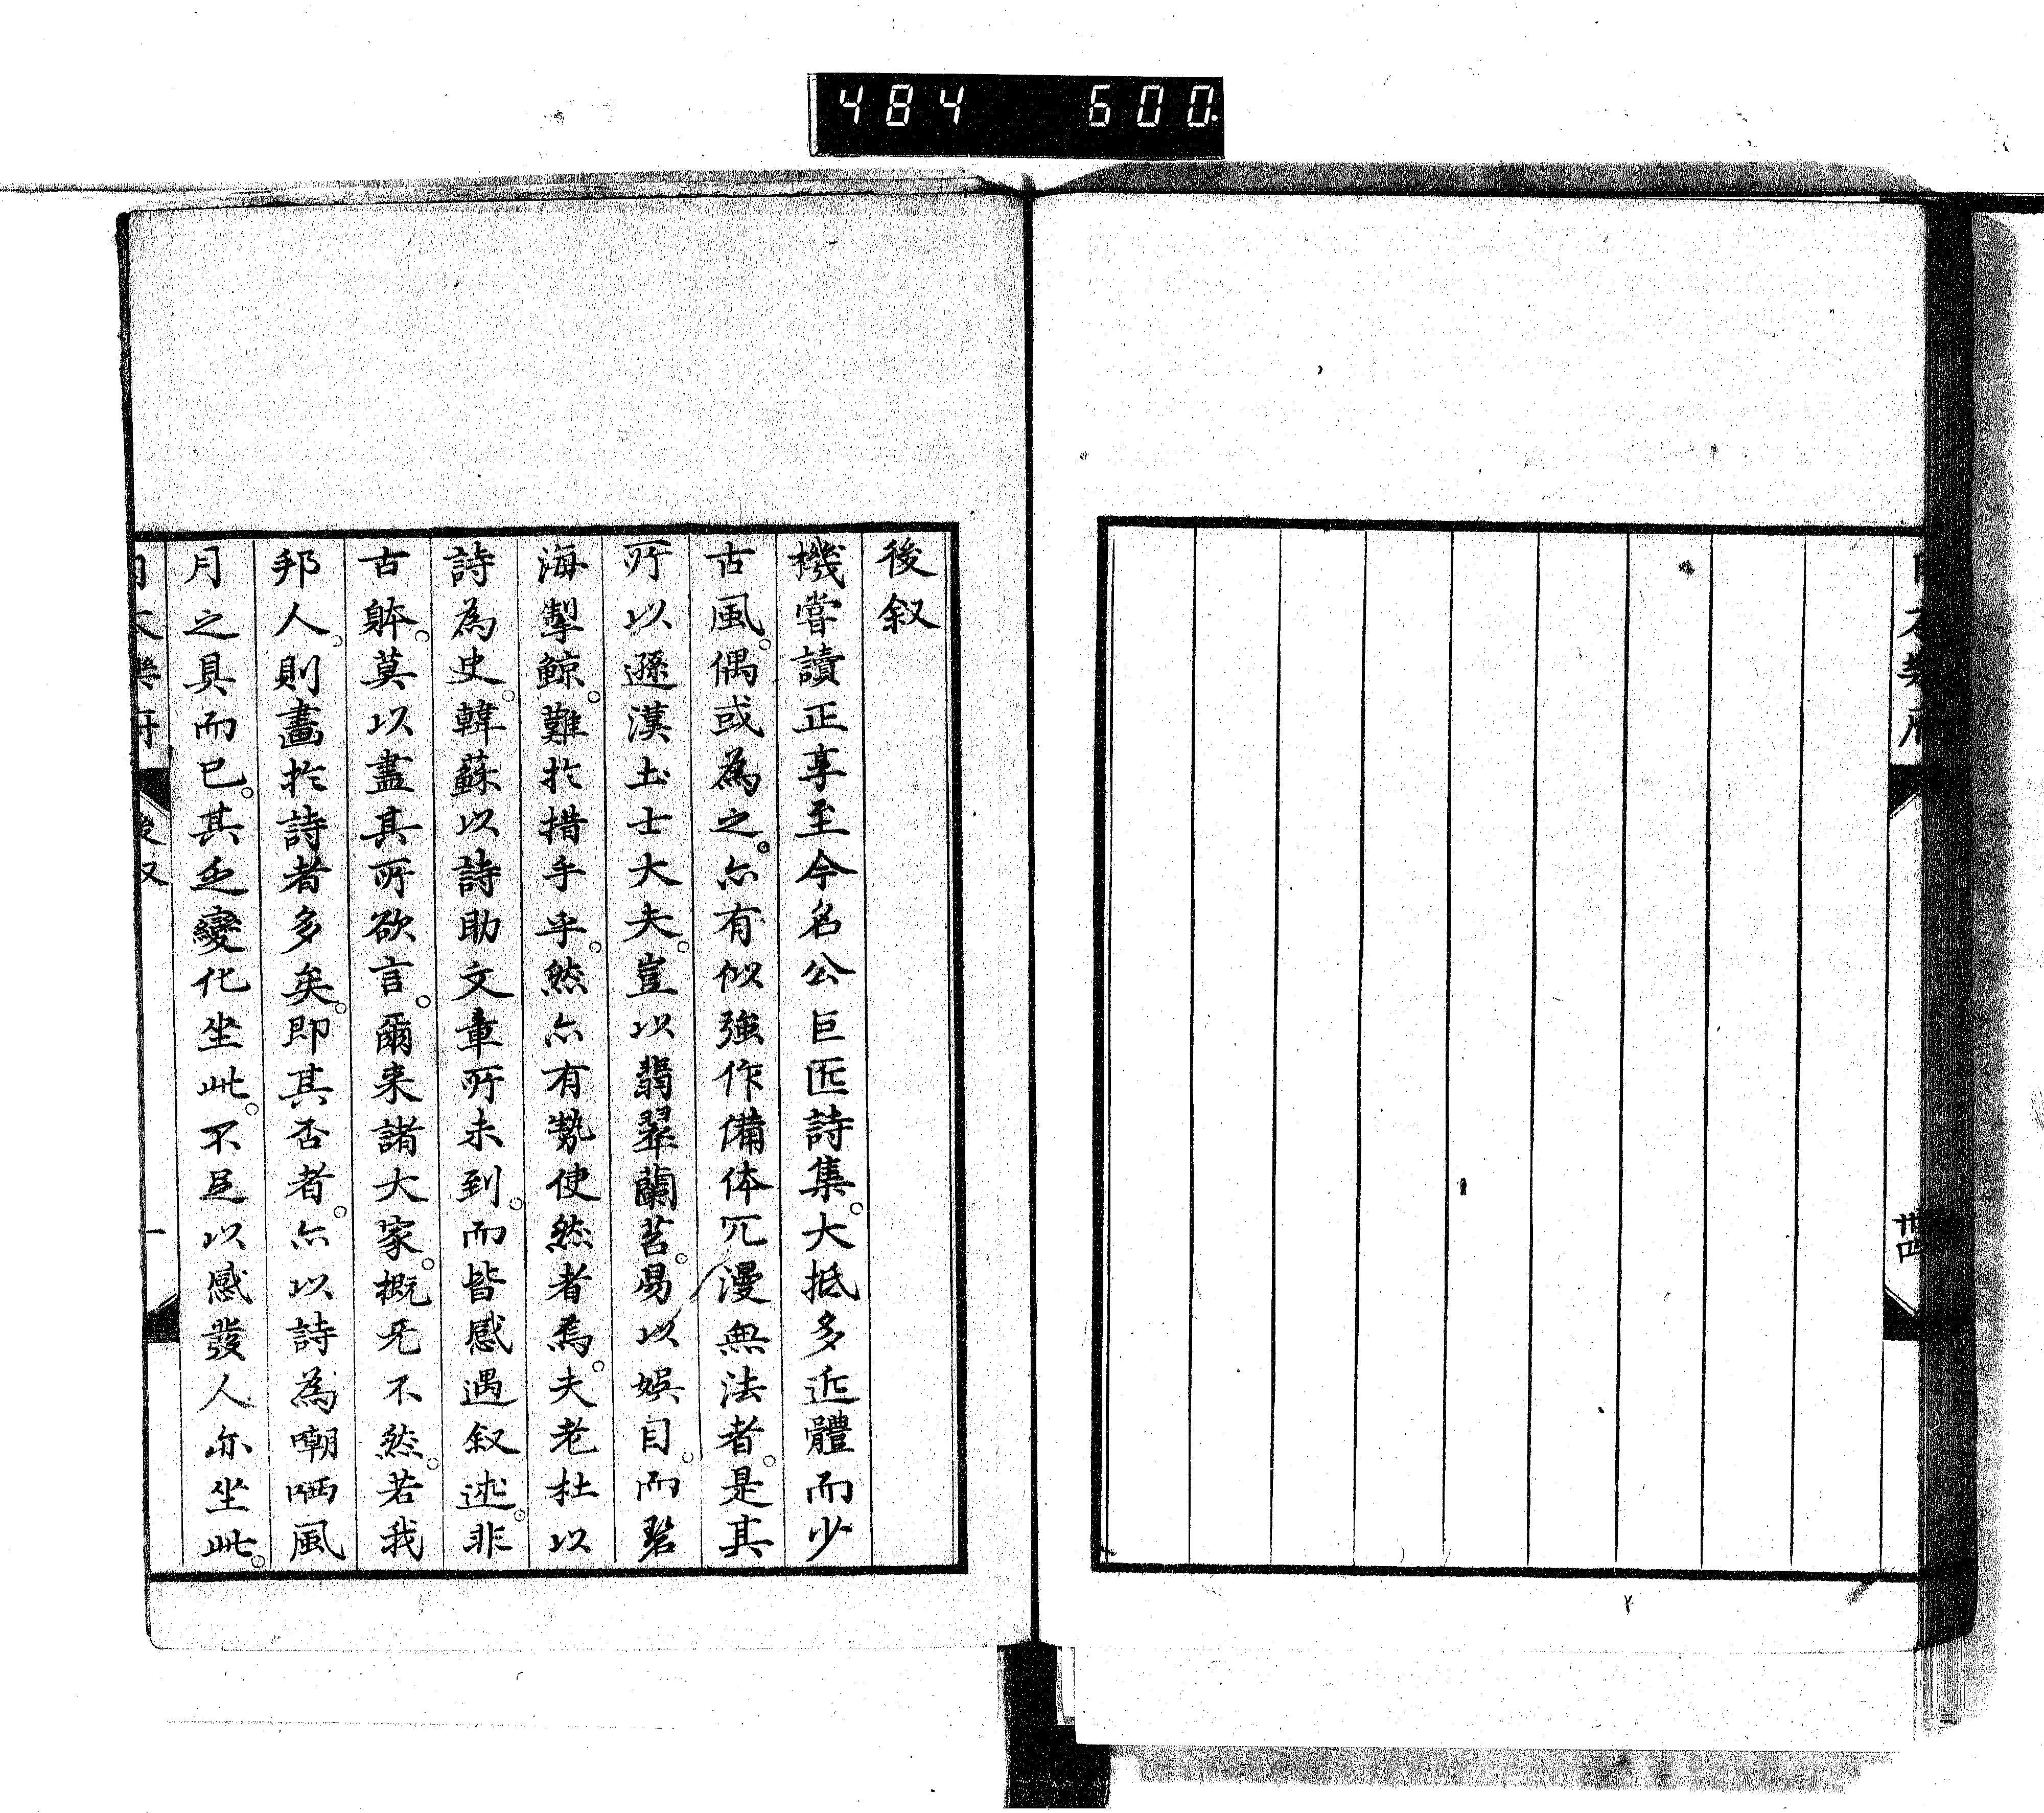 484 600
樂府
卅四
後叙
機嘗讀正享至今名公巨匠詩集。大抵多近體而少
古風。偶或為之。亦有似強作備体冗漫無法者。是其
所以遜漢土士大夫。豈以翡翠蘭苕。易以娯目。而碧
海掣鯨。難於措手乎。然亦有勢使然者焉。夫老杜以
詩為史。韓蘇以詩助文章所未到。而皆感遇叙述。非
古躰。莫以盡其所欲言。爾来諸大家。概无不然。若我
邦人。則畫於詩者多矣。即其否者。亦以詩為嘲哂風
月之具而已。其乏變化坐此。不足以感發人亦坐此。
後叙
一